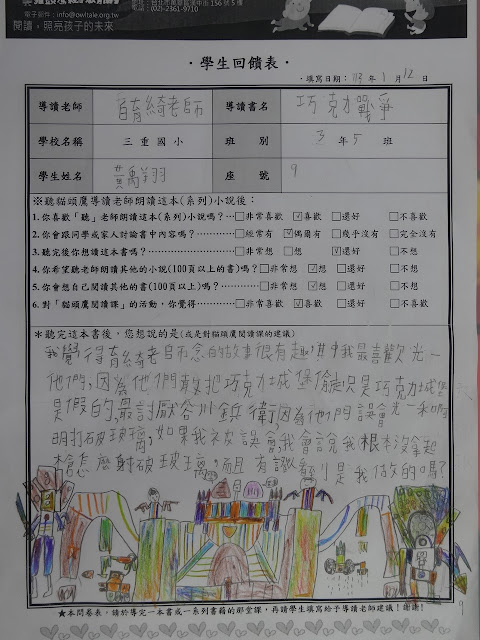 電子郵件：info@owltale.org.tw
電話：(02)-2361-9710
閱讀，照亮孩子的未來
·學生回饋表·
·填寫日期：113年1月12日
導讀老師 育綺老師 導讀書名 巧克力戰爭
學校名稱 三重國小 班別 3年5班
學生姓名 黃羽 座號 9
※聽貓頭鷹導讀老師朗讀這本(系列)小說後：
1.你喜歡「聽」老師朗讀這本(系列)小說嗎？⋯□非常喜歡 ☑喜歡 □還好 □不喜歡
2.你會跟同學或家人討論書中內容嗎？⋯⋯⋯□經常有 ☑偶爾有 □幾乎沒有 □完全沒有
3.聽完後你想讀這本書嗎？⋯⋯⋯⋯□非常想 □想 ☑還好 □不想
4.你希望聽老師朗讀其他的小說(100頁以上的書)嗎？□非常想 ☑想 □還好 □不想
5.你會想自己閱讀其他的書(100頁以上的書)嗎？⋯□非常想 ☑想 □還好 □不想
6.對「貓頭鷹閱讀課」的活動，你覺得⋯⋯⋯⋯□非常喜歡 ☑喜歡 □還好 □不喜歡
＊聽完這本書後，您想說的是(或是對貓頭鷹閱讀課的建議)
我覺得育綺老師念的故事很有趣，其中我最喜歡光一
他們，因為他們要把巧克力城堡偷走，可是巧克力城堡
是假的，最討厭谷川兵衛，因為他們誤會光一和
明打破玻璃，如果我被誤會，我會說我根本沒拿起
怎麼射破玻璃，而且有誰看到是我做的嗎？
★本問卷表，請於導完一本書或一系列書籍的那堂課，再請學生填寫給予導讀老師建議！謝謝！
9